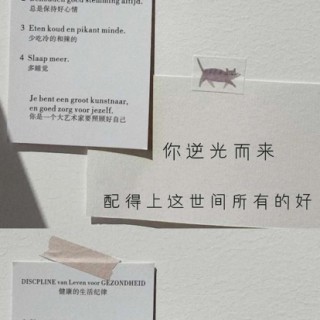 2 Behouden goed stemming altijd.
总是保持好心情
3 Eten koud en pikant minde.
少吃冷的和辣的
4 Slaap meer.
多睡觉
Je bent een groot kunstnaar,
en goed zorg voor jezelf.
你是一个大艺术家要照顾好自己
你逆光而来
配得上这世间所有的好
DISCPLINE van Leven voor GEZONDHEID
健康的生活纪律